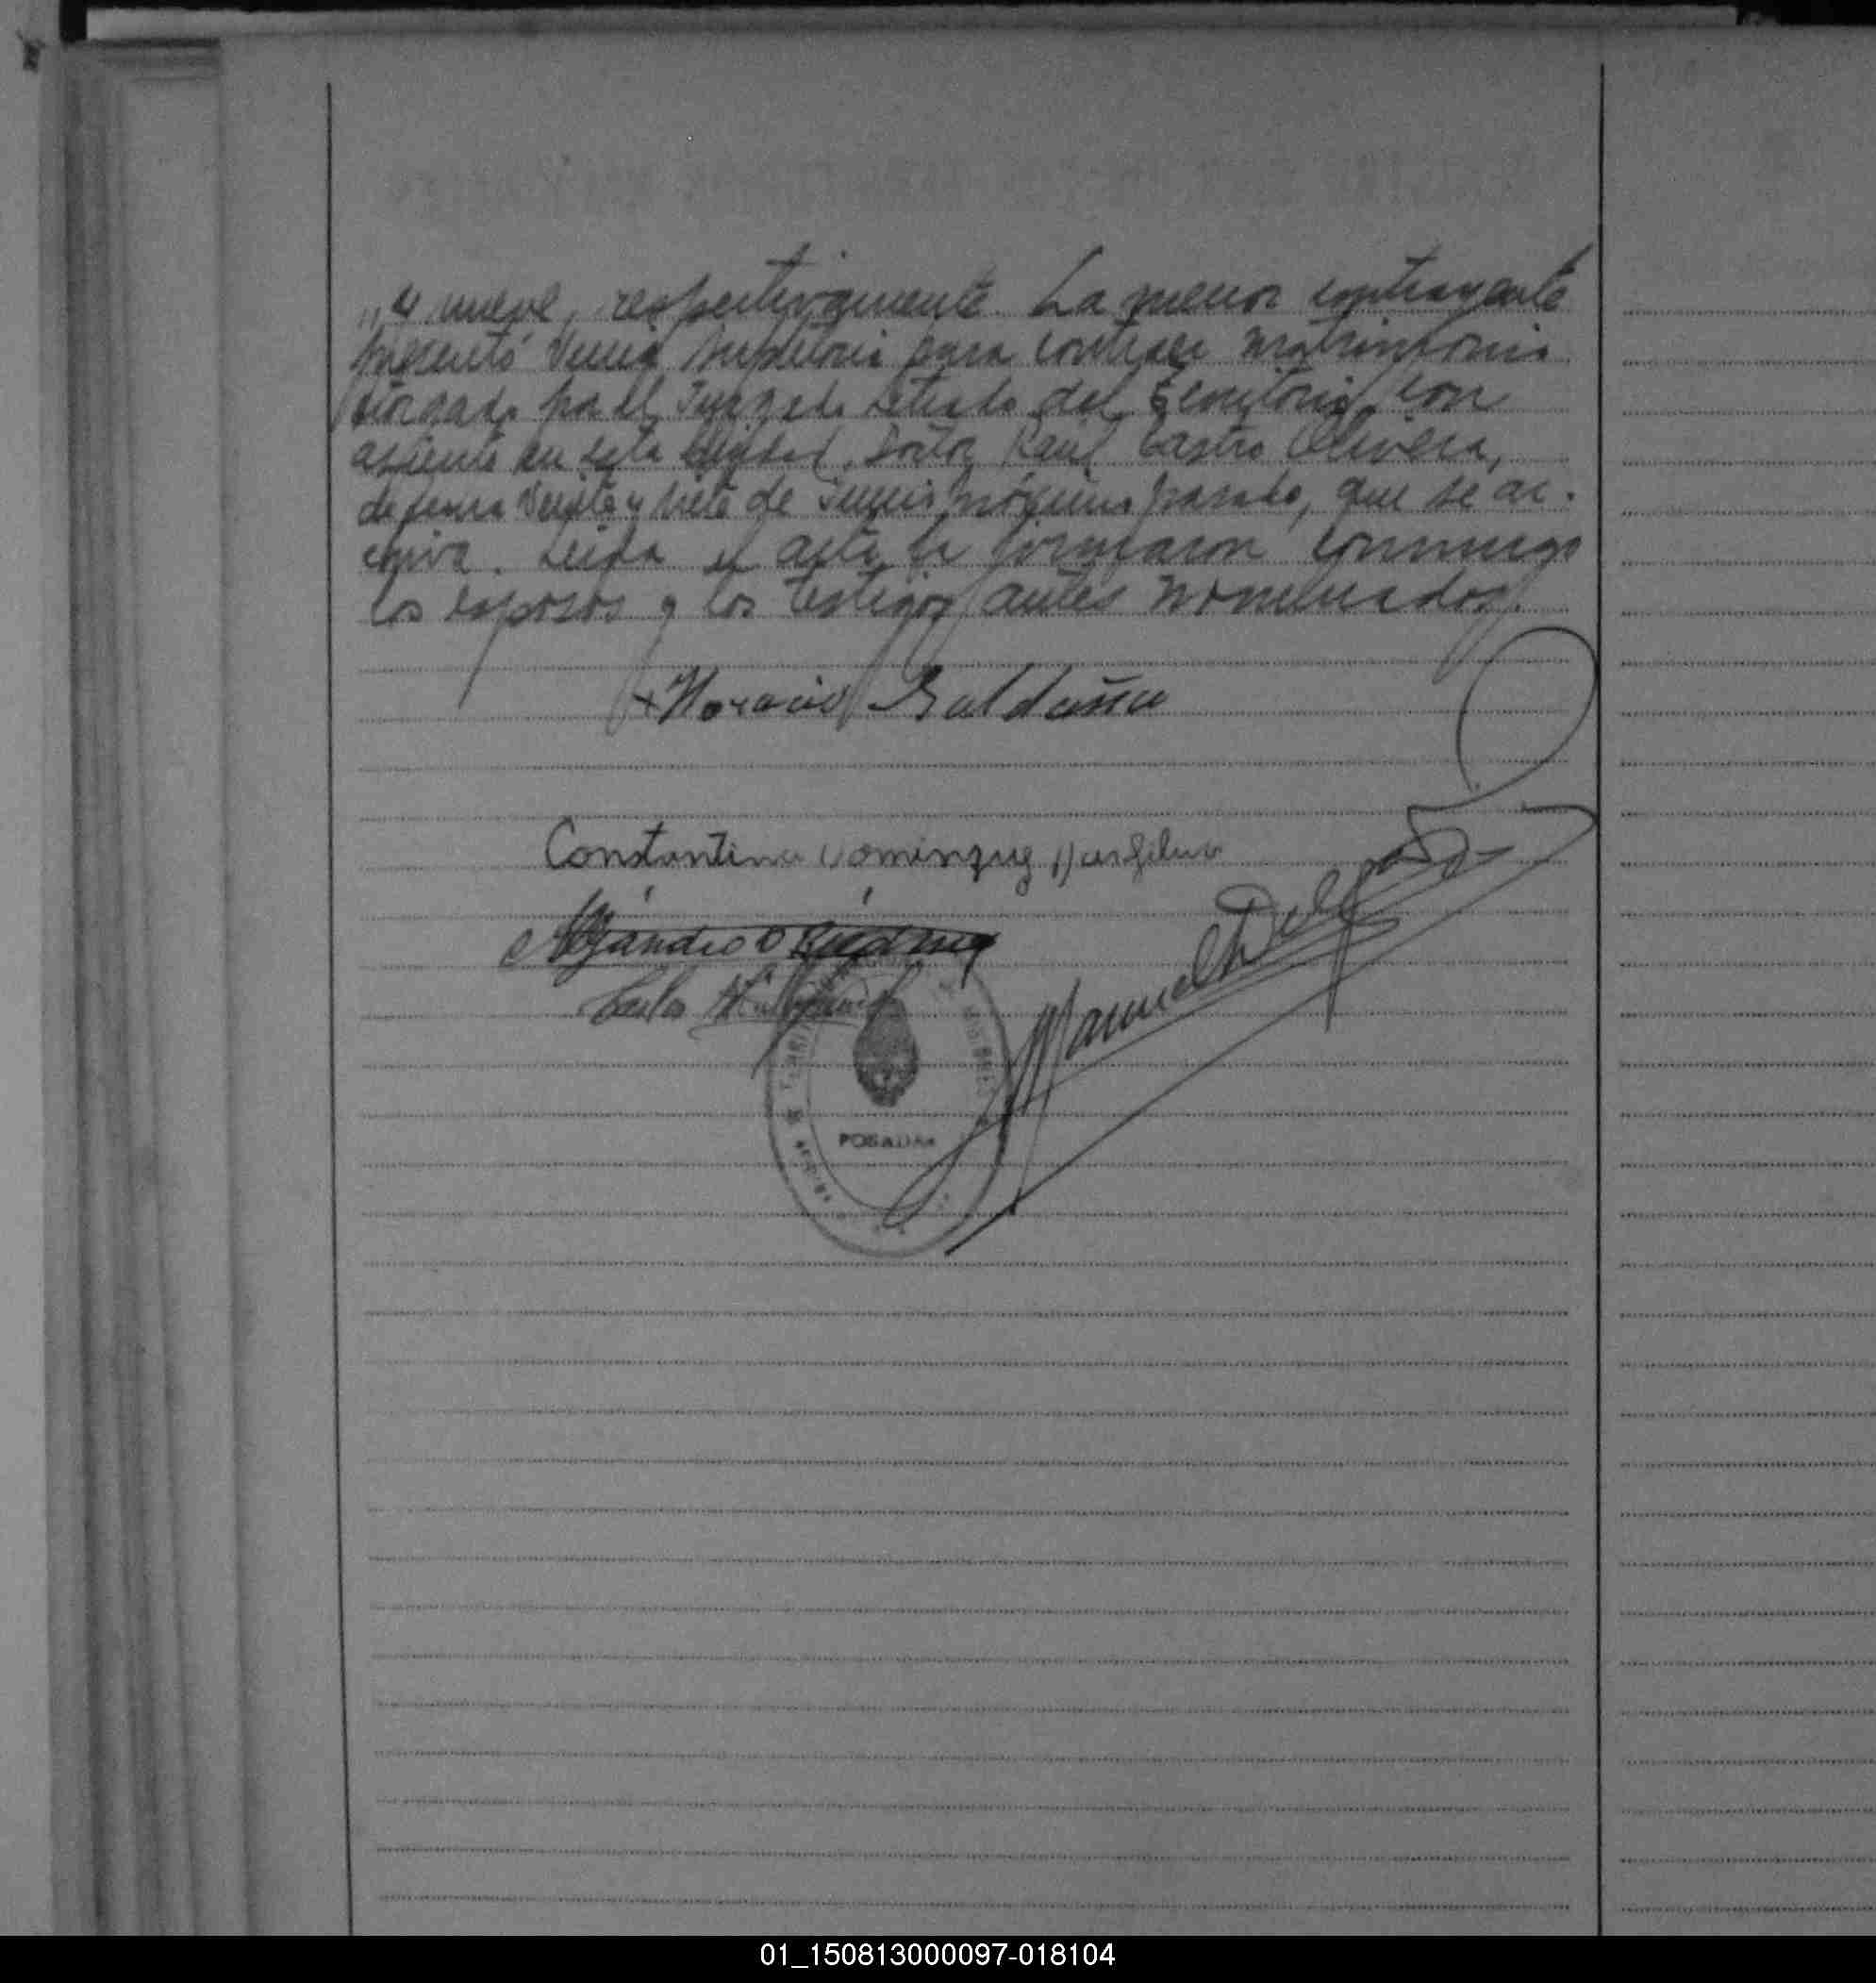 " y nueve, respectivamente. La menor contrayente
presentó venia supletoria para contraer matrimonio
por el Juzgado Letrado del Territorio con
asiento en esta Ciudad, Doctor Raúl Castro Olivera,
de fecha veinte y siete de Junio próximo pasado, que se ar-
chiva. Leída el acta la firmaron conmigo
los esposos y los testigos antes nombrados.
Horacio Saldaña
Constantina
Alejandro
Manuel Delgado
POSADAS
01_150813000097-018104